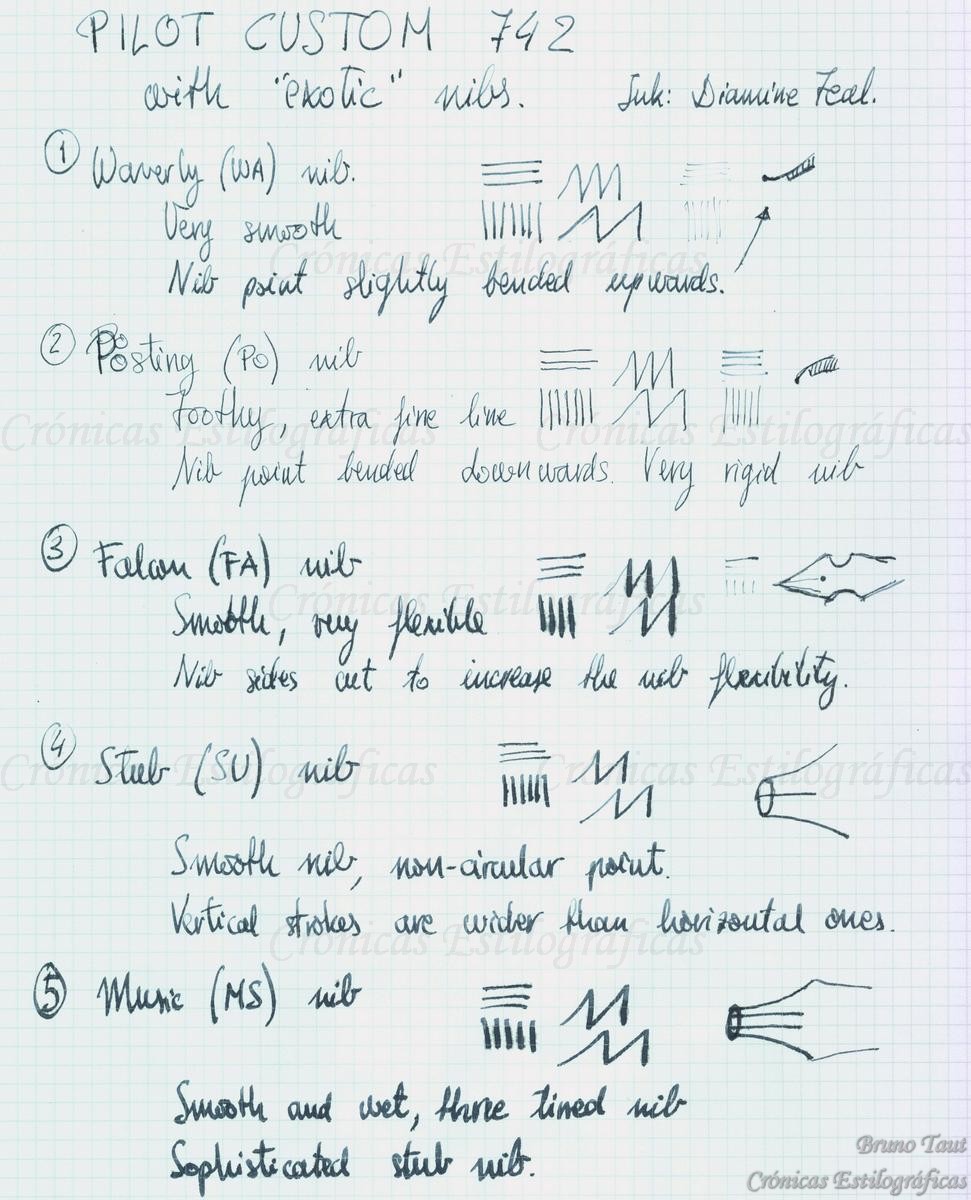 PILOT CUSTOM 742
with "exotic" nibs. Ink: Diamine Teal.
1 Waverly (WA) nib.
Very smooth
Nib point slightly bended upwards.
2 Posting (PO) nib
Toothy, extra fine line
Nib point bended downwards. Very rigid nib
3 Falcon (FA) nib
Smooth, very flexible
Nib sides cut to increase the nib flexibility.
4 Stub (SU) nib
Smooth nib, non-circular point.
Vertical strokes are wider than horizontal ones.
5 Music (MS) nib
Smooth and wet, three tined nib
Sophisticated stub nib.
Crónicas Estilográficas
Crónicas Estilográficas Crónicas Estilográficas
Crónicas Estilográficas
Crónicas Estilográficas Crónicas Estilográficas
Crónicas Estilográficas
Bruno Taut
Crónicas Estilográficas